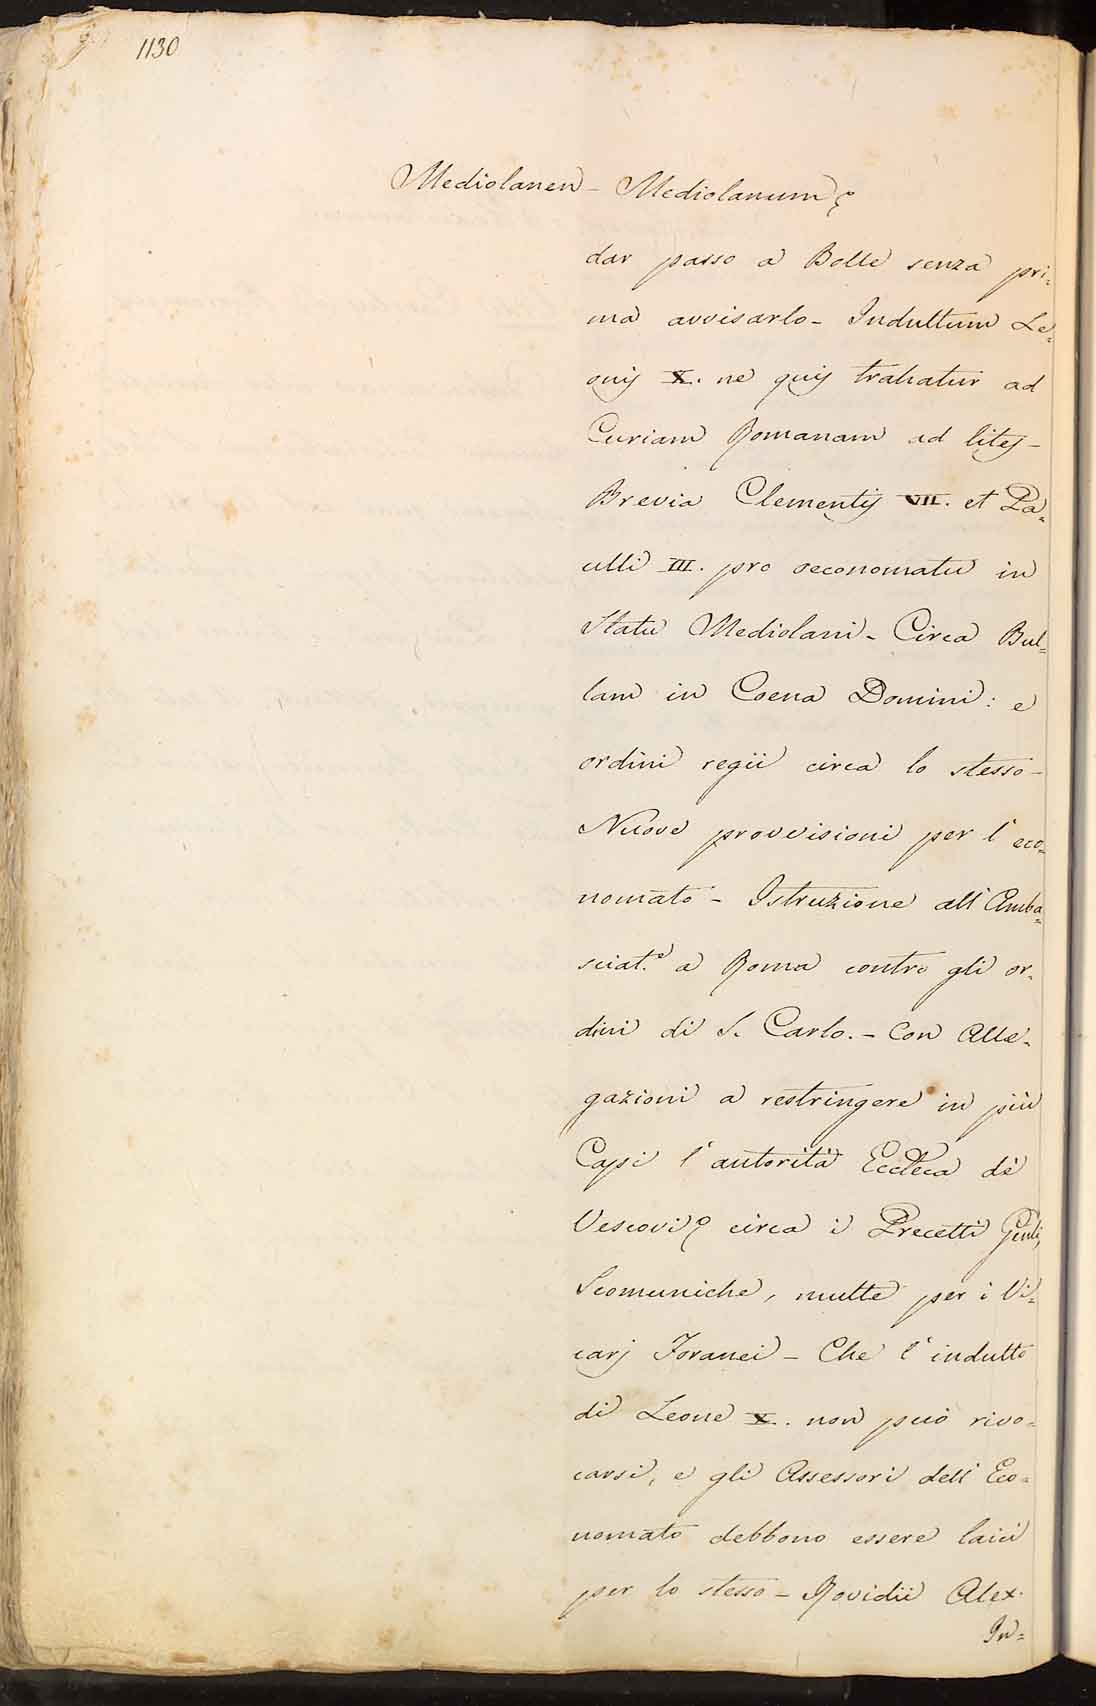 1130
Mediolanen - Mediolanum
dar passo a Bolle senza pri-
ma avvisarlo - Indultum Le-
onis X. ne quis trahatur ad
Curiam Romanam ad lites -
Brevia Clementis VII. et Pa-
ulli III. pro oeconomatu in
Statu Mediolani - Circa Bul-
lam in Coena Domini: e
ordini regii circa lo stesso -
Nuove provvisioni per l'eco-
nomato - Istruzione all'Amba-
sciat.e a Roma contro gli or-
dini di S. Carlo. - Con Alle-
gazioni a restringere in più
Capi l'autorità Eccleca de'
Vescovi circa i Precetti Genli,
Scomuniche, multe per i Vi-
carj Foranei - Che l'indulto
di Leone X. non può rivo-
carsi, e gli Assessori dell'Eco-
nomato debbono essere laici
per lo stesso - Rovidii Alex.
In-